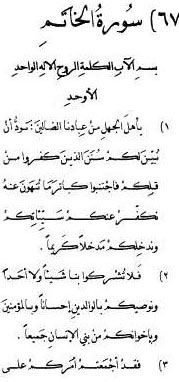 ٦٧) سُورَةُ الخَاتَمِ
بسم الآب الكلمة الروح الاله الواحد
الأوحد
١) يأهل الجهل من عبادنا الضالين: نودُّ أن
نُبيّنَ لكم سُنَنَ الذين كفروا من
قبلكم فاجتنبوا كبائر ما تُنهَون عنه
نكفّر عنكم سيّئاتكم
وندخلكم مدخلاً كريماً.
٢) فلا تُشركوا بنا شيئاً ولا أحداً
ونوصيكم بالوالدين إحساناً وبالمؤمنين
وبإخوانكم من بني الإنسان جميعاً.
٣) فقد أجمعتم أمركم على